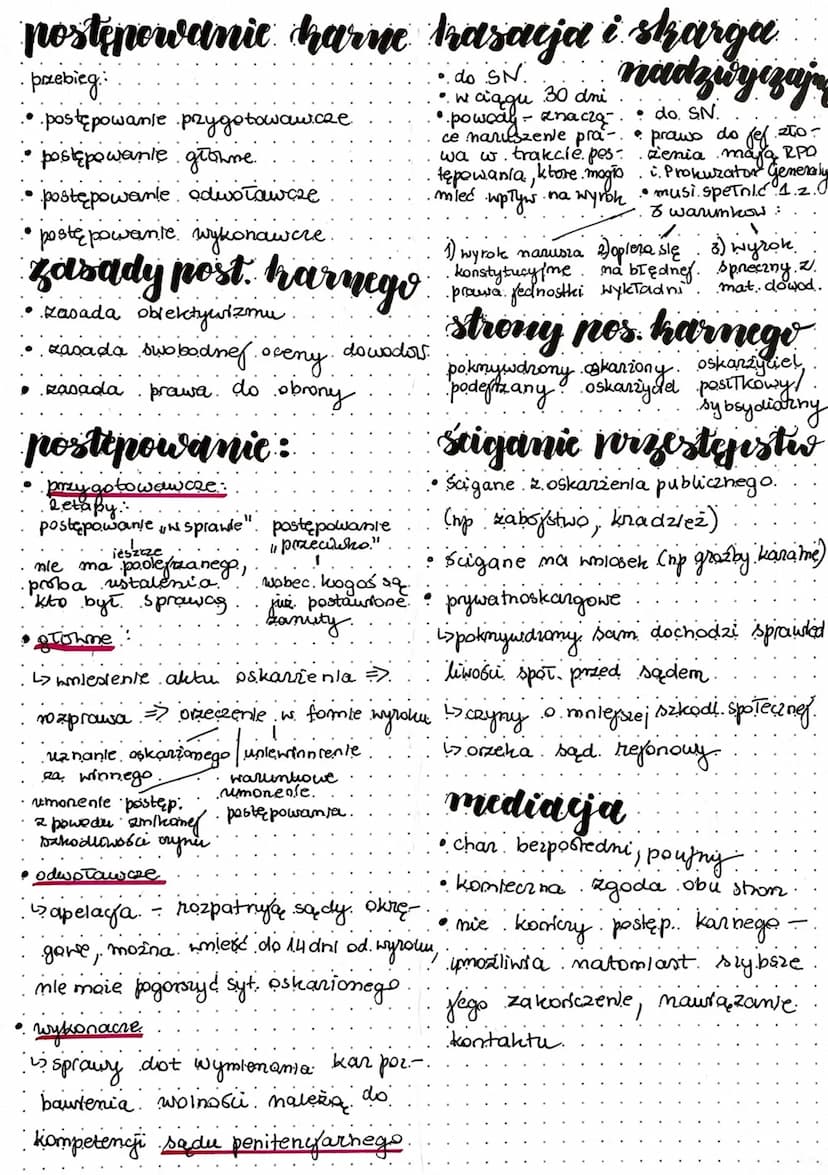 postępowanie karne
przebieg:
• postępowanie przygotowawcze
• postępowanie główne
• postępowanie odwoławcze
• postępowanie wykonawcze
zasady post. karnego
• zasada obiektywizmu
• zasada swobodnej oceny dowodów
• zasada prawa do obrony
postępowanie:
• przygotowawcze:
2 etapy:
postępowanie „w sprawie"
jeszcze
nie ma podejrzanego,
próba ustalenia
kto był sprawcą
postępowanie
„przeciwko"
wobec kogoś są
już postawione
zarzuty
• główne:
↳ wniesienie aktu oskarżenia =>
rozprawa => orzeczenie w formie wyroku
uznanie oskarżonego
za winnego
uniewinnienie
warunkowe
umorzenie
postępowania
umorzenie postęp.
z powodu znikomej
szkodliwości czynu
• odwoławcze
↳ apelacja - rozpatrują sądy okrę-
gowe, można wnieść do 14 dni od wyroku,
nie może pogorszyć syt. oskarżonego
• wykonacze
↳ sprawy dot wymierzania kar poz-
bawienia wolności należą do
kompetencji sądu penitencjarnego
kasacja i skarga
nadzwyczajna
• do SN
• w ciągu 30 dni
• powody - znaczą-
ce naruszenie pra-
wa w trakcie pos-
tępowania, które mogło
mieć wpływ na wyrok
• do SN
• prawo do jej zło-
żenia mają RPO
i Prokurator Generalny
• musi spełnić 1 z
3 warunków:
1) wyrok narusza
konstytucyjne
prawa jednostki
2) opiera się
na błędnej
wykładni
3) wyrok
sprzeczny z
mat. dowod.
strony pos. karnego
pokrzywdzony oskarżony oskarżyciel
podejrzany oskarżyciel posiłkowy/
sybsydiarny
ściganie przestępstw
• ścigane z oskarżenia publicznego
(np zabójstwo, kradzież)
• ścigane na wniosek (np groźby karalne)
• prywatnoskargowe
↳ pokrzywdzony sam dochodzi sprawied
liwości społ. przed sądem
↳ czyny o mniejszej szkodl. społecznej
↳ orzeka sąd rejonowy
mediacja
• char. bezpośredni, poufny
• konieczna zgoda obu stron
• nie kończy postęp. karnego -
umożliwia natomiast szybsze
jego zakończenie, nawiązanie
kontaktu